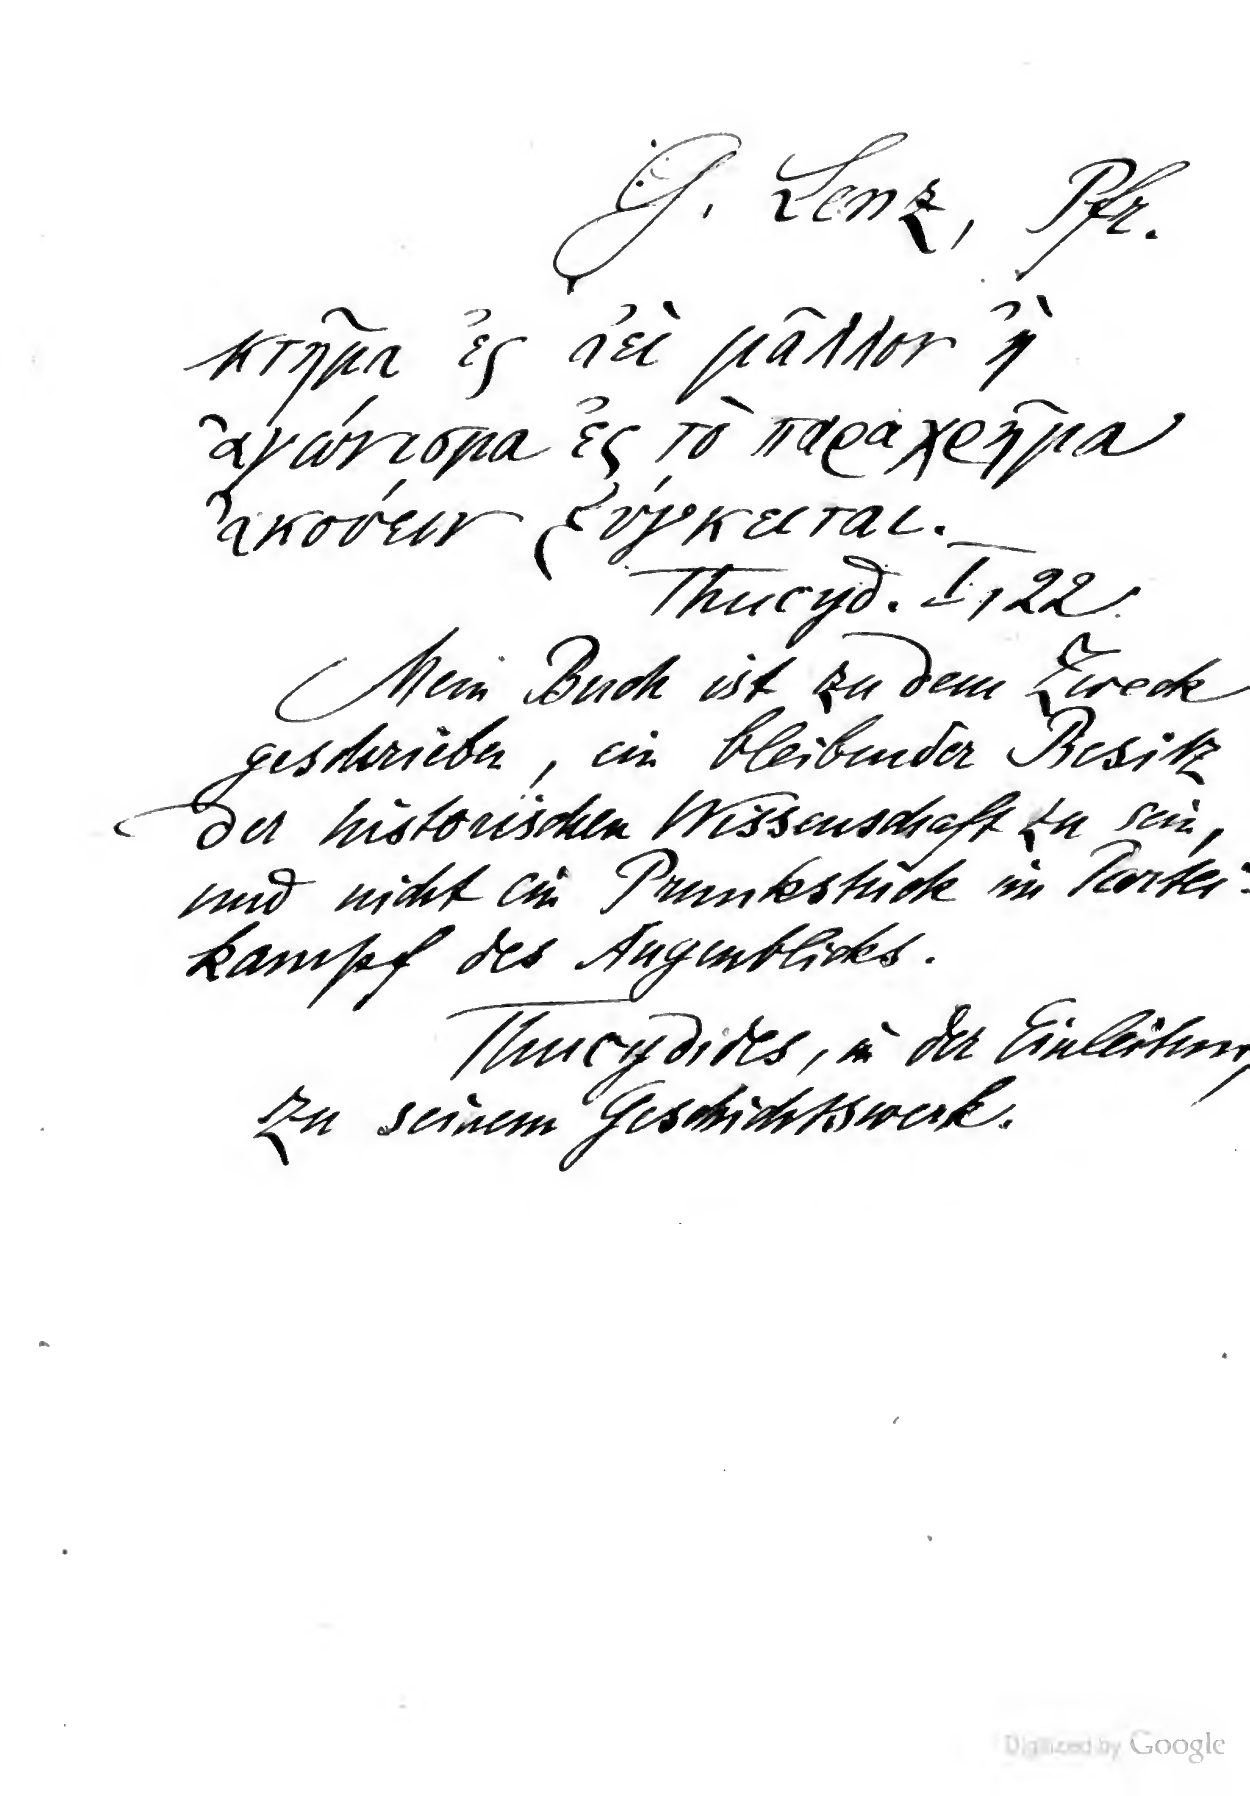 G. Lenz, Pfr.
κτῆμα ἐς ἀεὶ μᾶλλον ἢ
ἀγώνισμα ἐς τὸ παραχρῆμα
ἀκούειν ξύγκειται.
Thucyd. I, 22.
Mein Buch ist zu dem Zweck
geschrieben, ein bleibender Besitz
der historischen Wissenschaft zu sein,
und nicht ein Prunkstück im Partei=
kampf des Augenblicks.
Thucydides, in der Einleitung
zu seinem Geschichtswerk.
Digitized by Google